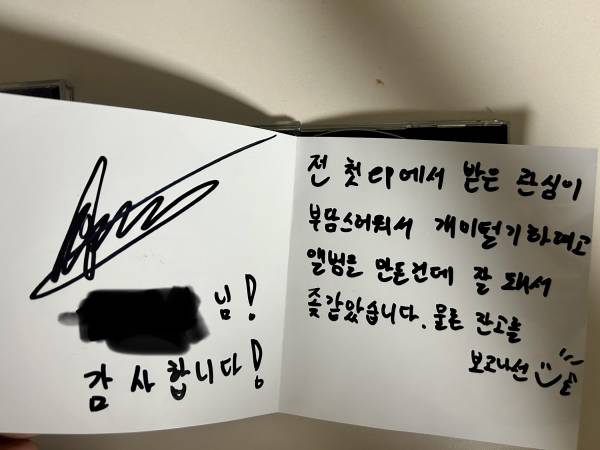 님!
감사합니다!
전 첫 ep에서 받은 관심이
부담스러워서 개미털기하려고
앨범을 만든건데 잘 돼서
좆같았습니다. 물론 잔고를
보고나선